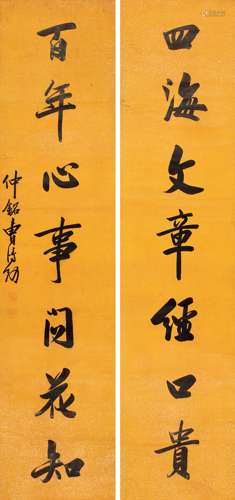 四海文章經口貴
百年心事問花知
仲銘曹鴻勛